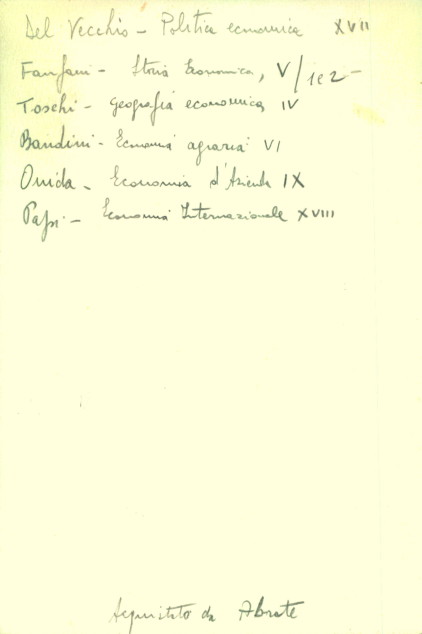 Del Vecchio - Politica economica XVII
Fanfani - Storia Economica, V/1e2 -
Toschi - Geografia economica, IV
Bandini - Economia agraria VI
Onida - Economia d'Azienda IX
Papi - Economia Internazionale XVIII
Acquistato da Abrate